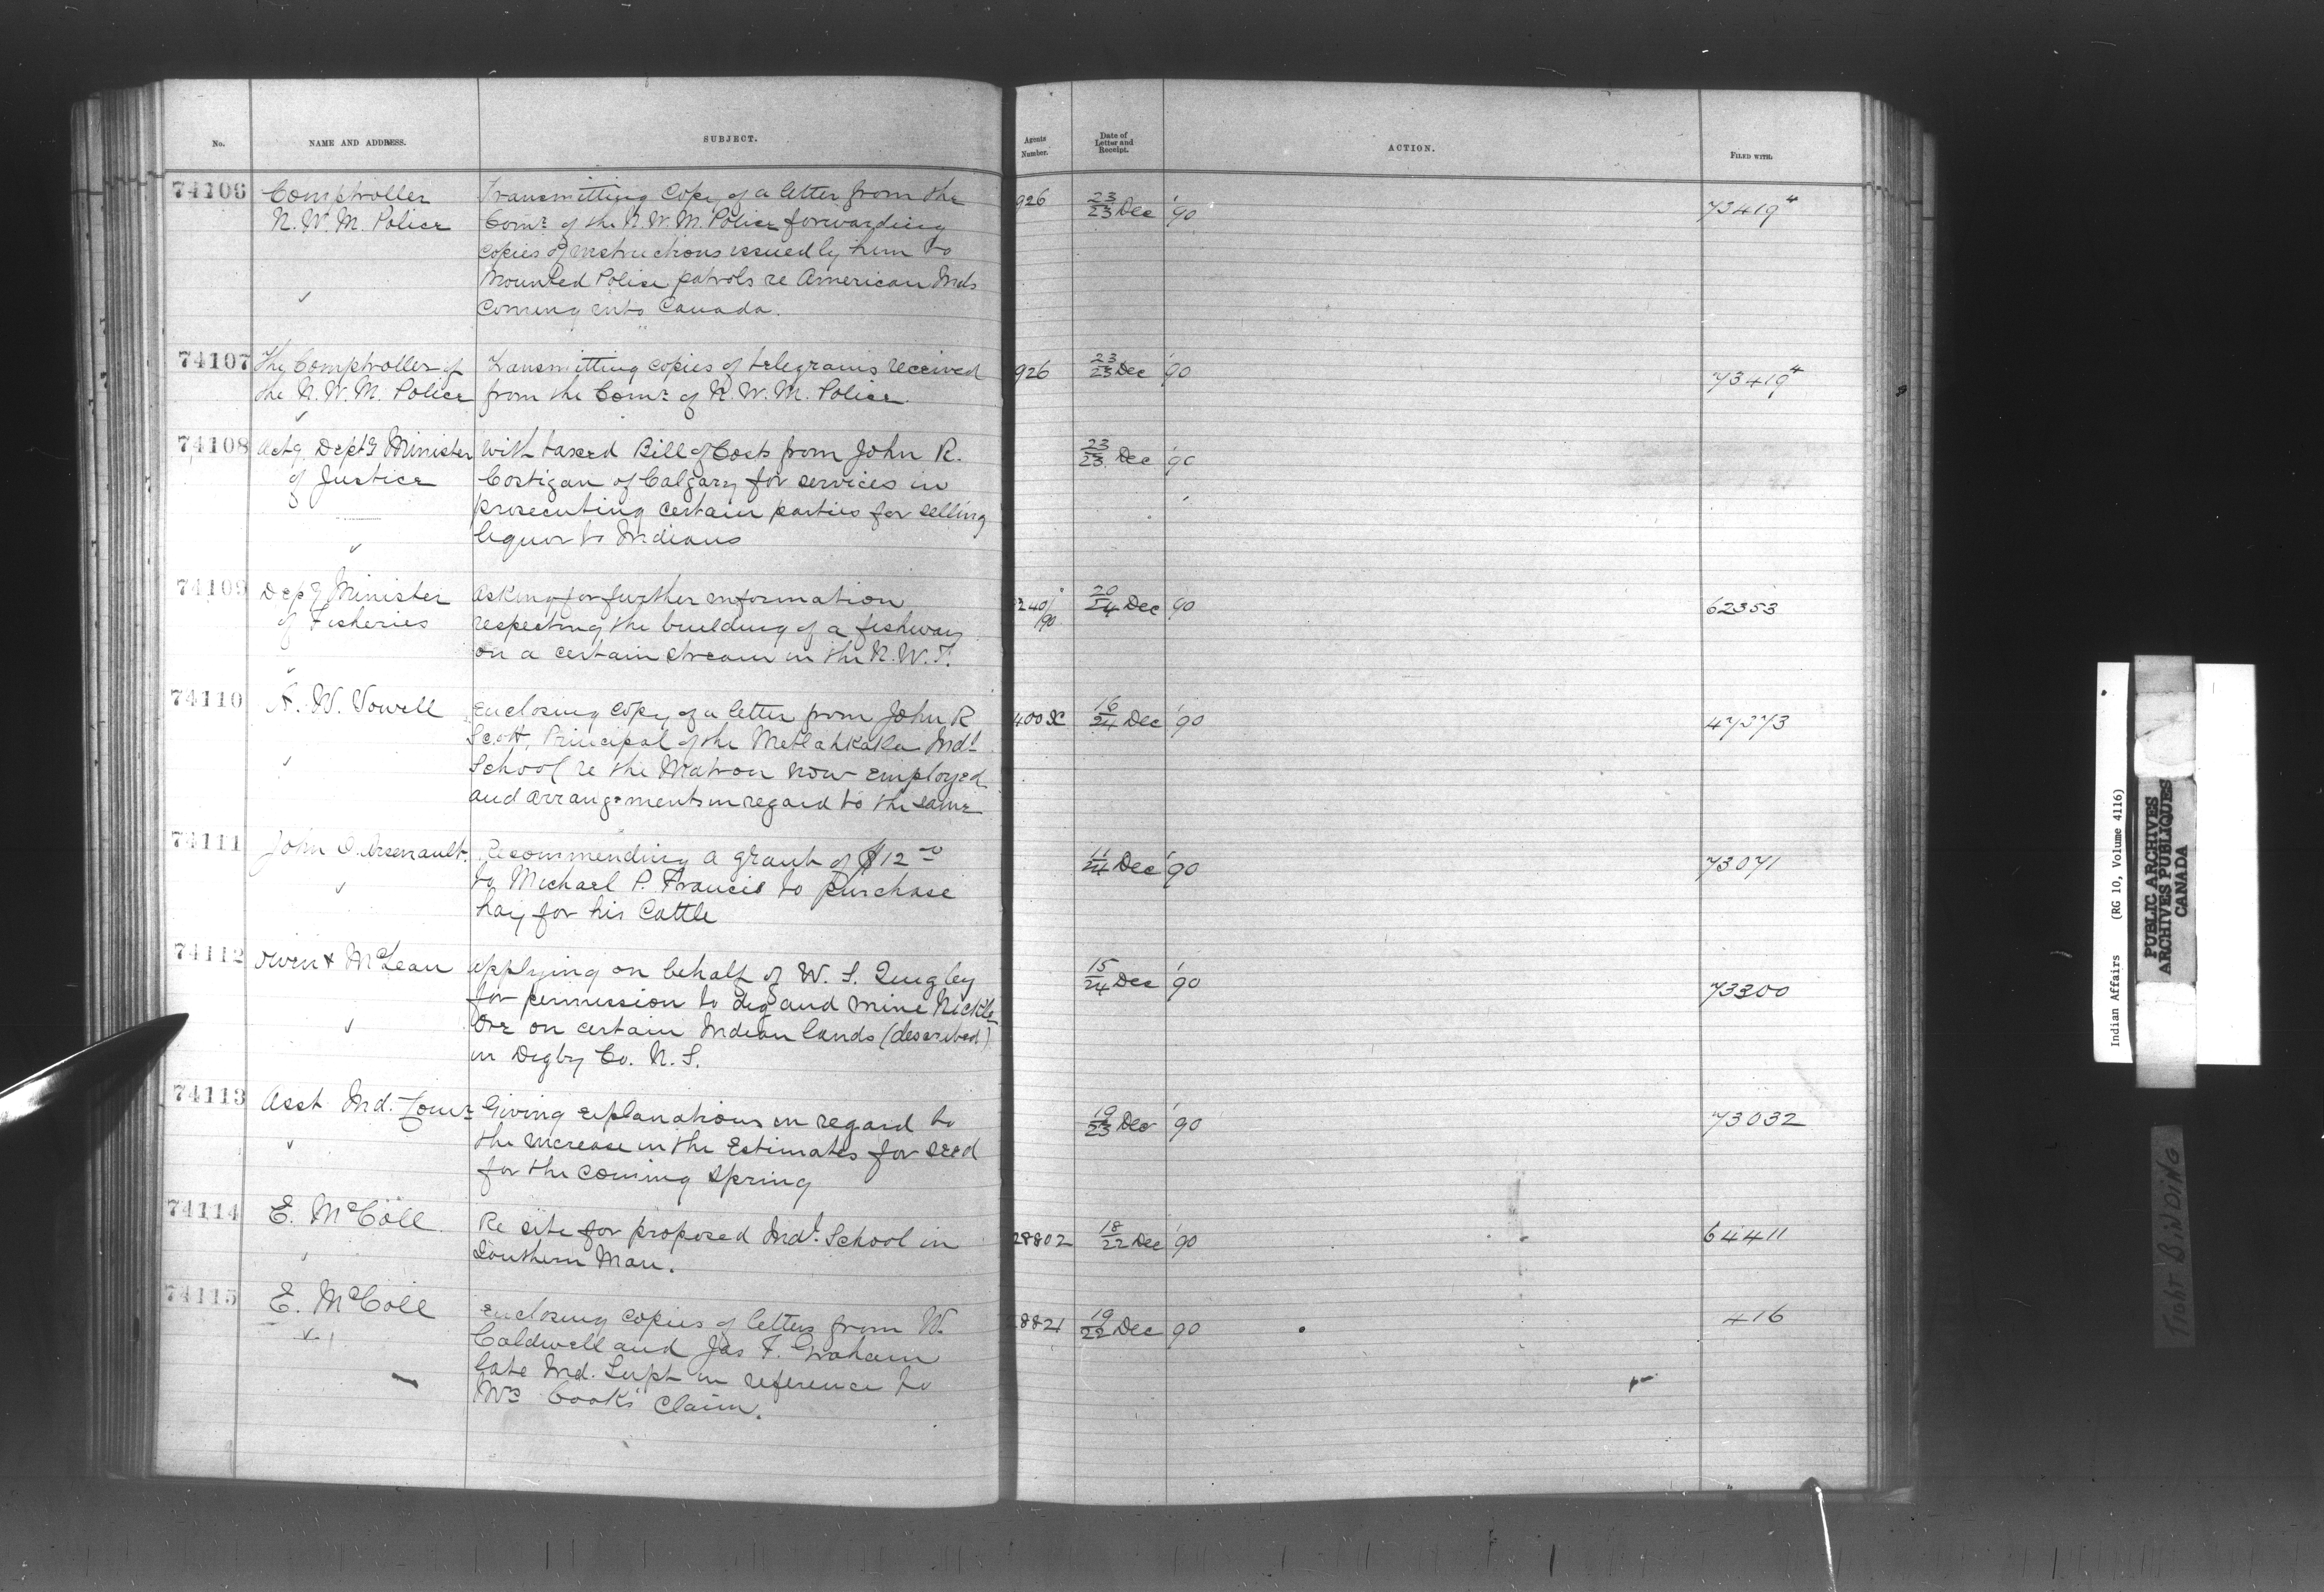 No. NAME AND ADDRESS. SUBJECT. Agents Number. Date of Letter and Receipt. ACTION. FILED WITH.
74106 Comptroller Transmitting Copy of a letter from the 926 23/23 Dec '90 73419⁴
N. W. M. Police Comr. of the N. W. M. Police forwarding
copies of instructions issued by him to
Mounted Police patrols re American Inds
✓ Coming into Canada.
74107 The Comptroller of Transmitting copies of telegrams received 926 23/23 Dec '90 73419⁴
the N. W. M. Police from the Comr. of N. W. M. Police.
✓
74108 Actg Depty Minister With taxed Bill of Costs from John R. 23/23 Dec '90
of Justice Costigan of Calgary for services in
prosecuting certain parties for selling
✓ liquor to Indians
74109 Depy Minister Asking for further information 240/90 20/24 Dec 90 62353
of Fisheries respecting the building of a fishway
on a certain stream in the N. W. T.
✓
74110 A. W. Vowell Enclosing copy of a letter from John R 16/24 Dec '90 47373
Scott, Principal of the Metlahkatla Indl
✓ School re the Matron now employed
and arrangements in regard to the same
74111 John O. Arsenault. Recommending a grant of $12 00 11/24 Dec '90 73071
✓ to Michael P. Francis to purchase
hay for his Cattle
74112 Owen & McLean Applying on behalf of W. S. Quigley 15/24 Dec '90 73300
for permission to dig and mine Nickle
✓ Ore on certain Indian lands (described)
in Digby Co. N. S.
74113 Asst Ind. Comr Giving explanations in regard to 19/23 Dec '90 73032
✓ the increase in the Estimates for seed
for the coming Spring
74114 E. McColl Re site for proposed Indl. School in 28802 18/22 Dec '90 64411
Southern Man.
74115 E. McColl Enclosing copies of letters from W. 28821 19/22 Dec 90 416
✓ Caldwell and Jas F. Graham
late Ind. Supt in reference to
Mrs Cook's Claim.
Indian Affairs (RG 10, Volume 4116)
PUBLIC ARCHIVES
ARCHIVES PUBLIQUES
CANADA
TIGHT BINDING